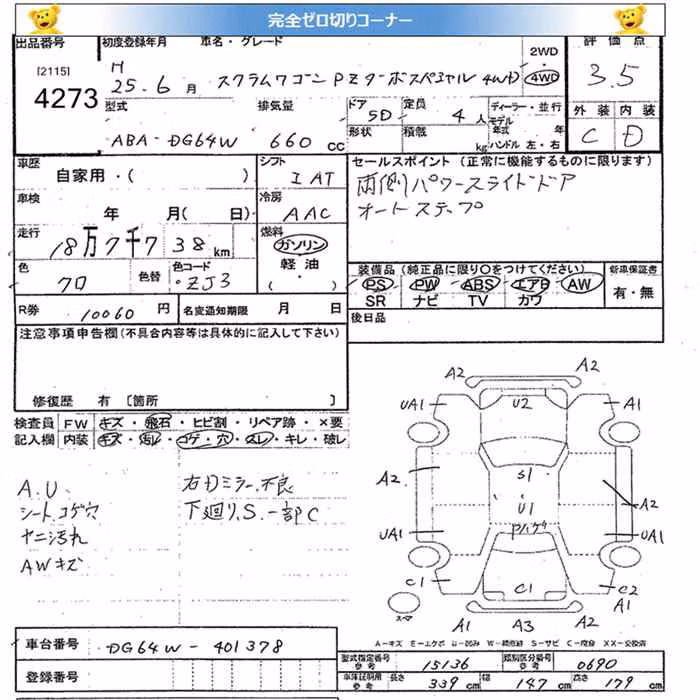 完全ゼロ切りコーナー
出品番号
[2115]
4273
初度登録年月
車名・グレード
H
25.6月
スクラムワゴン PZターボスペシャル 4WD
2WD
4WD
評価点
3.5
型式
ABA-DG64W
排気量
660 cc
ドア
5D
定員
4人
ディーラー・並行
モデル
年式 年
形状
積載
kg
ハンドル 左・右
外装 内装
C D
車歴
自家用・( )
シフト
IAT
セールスポイント (正常に機能するものに限ります)
両側パワースライドドア
オートステップ
車検
年 月( 日)
冷房
AAC
走行
18万7千738km
燃料
ガソリン
軽油
・( )
色
クロ
色替
色コード
ZJ3
装備品 (純正品に限り○をつけてください)
PS PW ABS エアB AW
SR ナビ TV カワ
新車保証書
有・無
R券
10060円
名変通知期限 月 日
後日品
注意事項申告欄(不具合内容等は具体的に記入して下さい)
修復歴 有 [箇所 ]
検査員
記入欄
FW キズ・飛石・ヒビ割・リペア跡・×要
内装 キズ・汚レ・コゲ・穴・スレ・キレ・破レ
A.U.
シートコゲ穴
ヤニ汚れ
AWキズ
右Dミラー不良
下廻りS.一部C
A2
A2
UA1
U2
A1
A2
S1
A2
U1
UA1
Pハゲ
UA1
C1
C1
C2
A1
スペア
A1
A3
A2
A-キズ E-エクボ U-凹み W-補修跡 S-サビ C-腐食 XX-交換済
車台番号
DG64W-401378
登録番号
型式指定番号
参考
15136
類別区分番号
参考
0690
車体証明用
参考
長さ
339 cm
幅
147 cm
高さ
179 cm